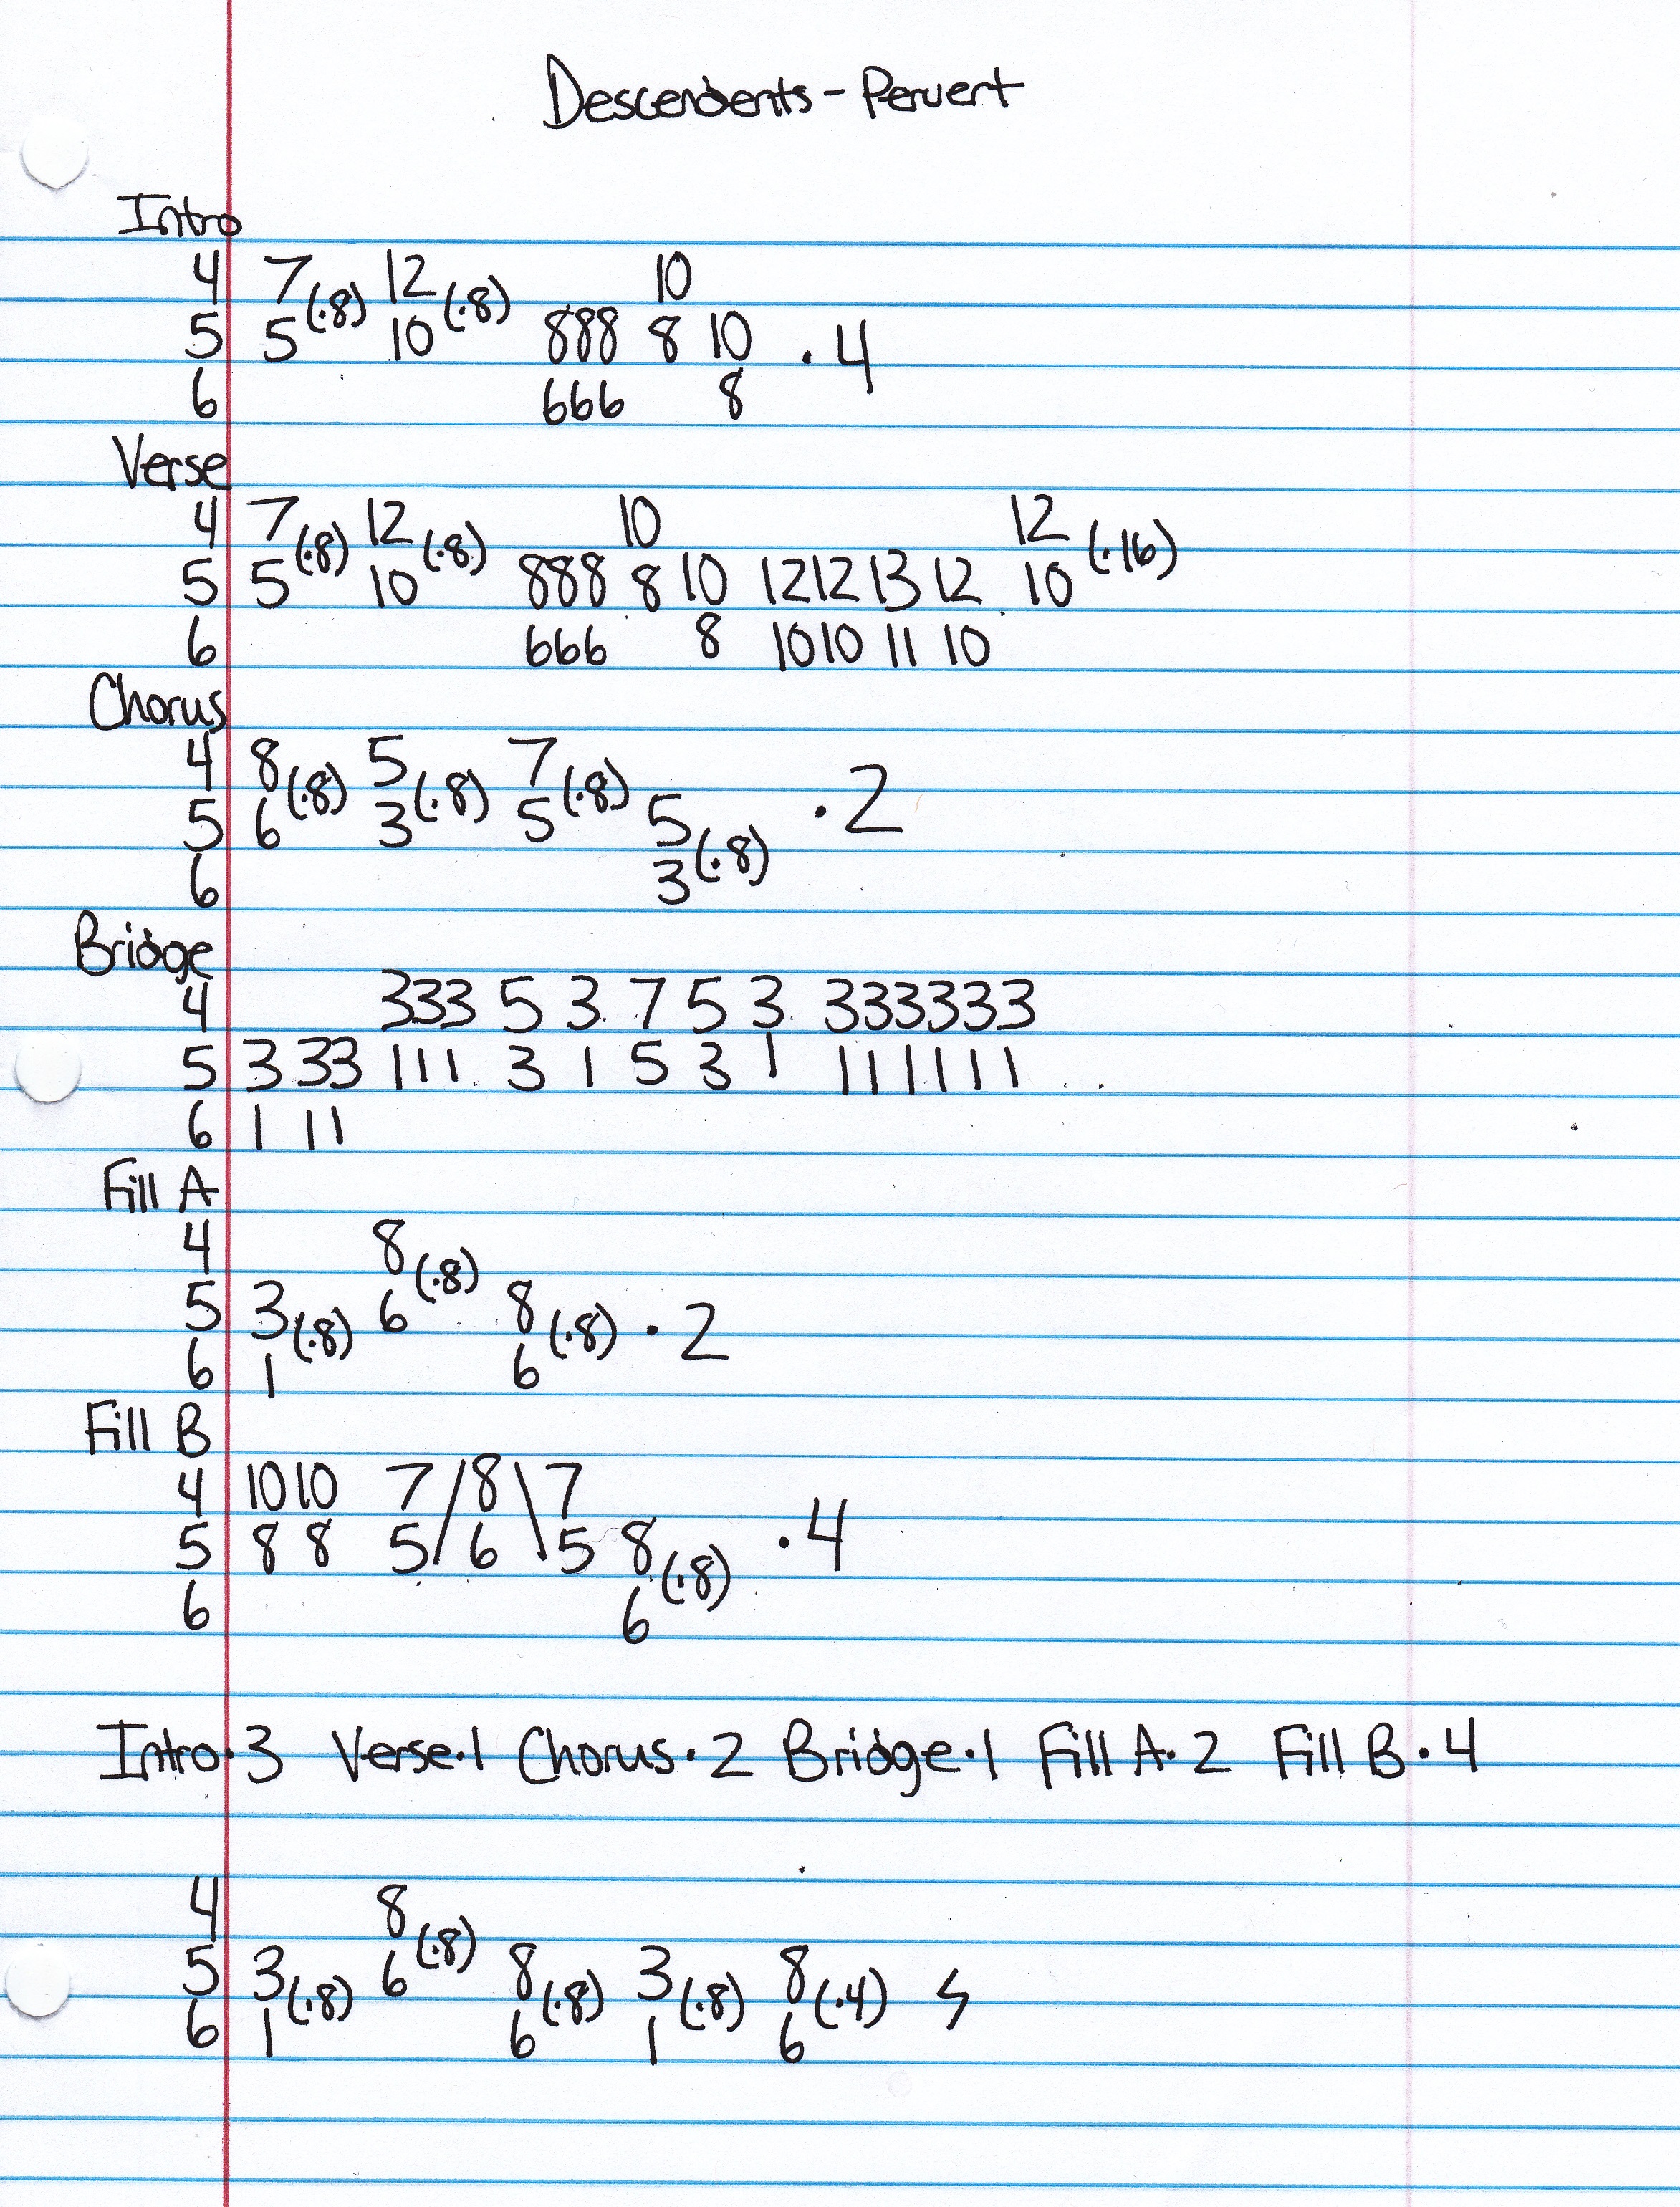 Descendents - Pervert
Intro
4 7 (·8) 12 (·8) 10
5 5 10 888 8 10 · 4
6 666 8
Verse
4 7 (·8) 12 (·8) 10 12 (·16)
5 5 10 888 8 10 12 12 13 12 10
6 666 8 10 10 11 10
Chorus
4 8 (·8) 5 (·8) 7 (·8)
5 6 3 5 5 · 2
6 3 (·8)
Bridge
4 333 5 3 7 5 3 333333
5 3 33 111 3 1 5 3 1 111111
6 1 11
Fill A
4 8 (·8)
5 3 (·8) 6 8 (·8) · 2
6 1 6
Fill B
4 10 10 7 / 8 \ 7
5 8 8 5 / 6 \ 5 8 (·8) · 4
6 6
Intro·3 Verse·1 Chorus·2 Bridge·1 Fill A·2 Fill B·4
4 8 (·8)
5 3 (·8) 6 8 (·8) 3 (·8) 8 (·4)
6 1 6 1 6